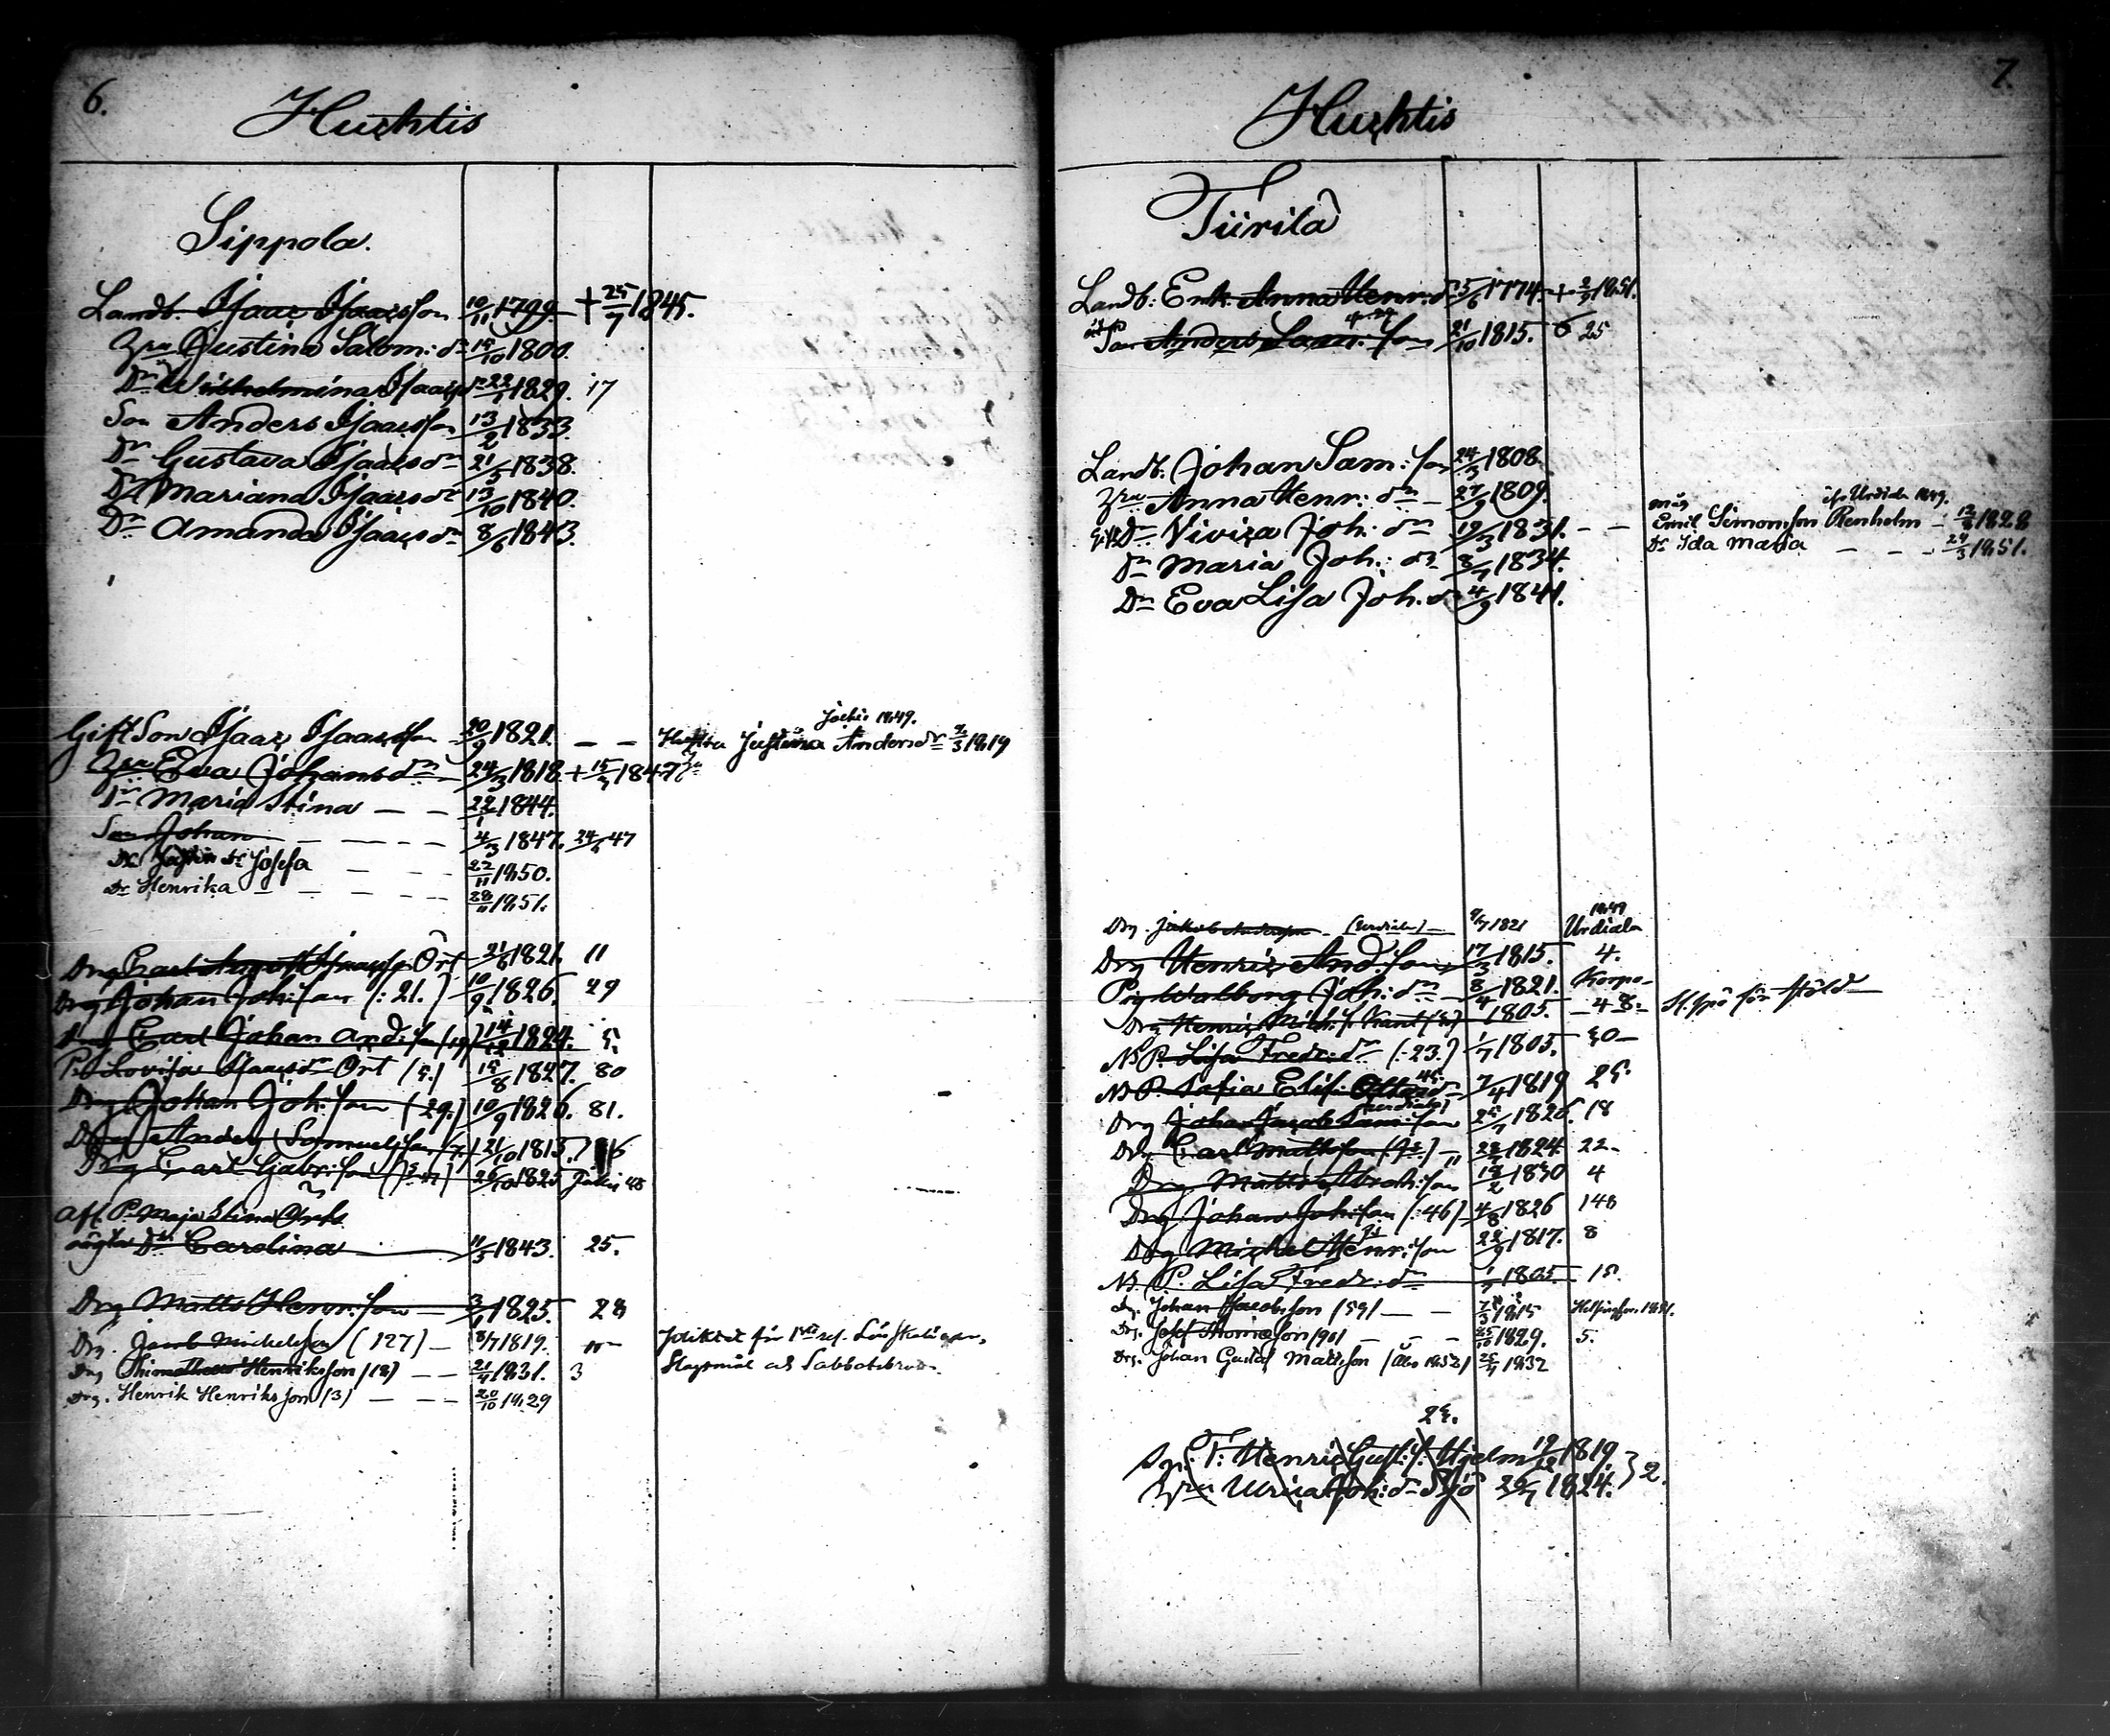 6.
Huchtis
Sippola.
Landb. Isaac Isaacsson 10/11 1799. + 25/7 1845.
Hru Justina Salom: dr 15/10 1800.
Dr Wilhelmina Isaacsdr 22/1 1829. 17
Son Anders Isaacsson 13/2 1833.
Dr Gustava Isaacsdr 21/5 1838.
Dr Mariana Isaacsdr 13/10 1840.
Dr Amanda Isaacsdr 8/6 1843.
Gift Son Isaac Isaacsson 20/9 1821. — — Hustru Justina Andersdr 2/3 1819
Jockis 1849.
Hru Eva Johansdr 24/3 1818. + 15/3 1847
Dr Maria Stina — — 22/1 1844.
Son Johan — — — 4/3 1847. 24/4 47
Dr Josefa — — 22/11 1850.
Dr Henrika — — — 28/11 1851.
Drg Carl August Ört 21/6 1821. 11
Drg Johan Joh: son (: 21.) 10/9 1826. 29
Drg Carl Johan And: son (19) 14/12 1824. 5.
P. Lovisa Isaacsdr Ört (5.) 15/8 1827. 80
Drg Johan Joh: son (29.) 10/9 1826. 81.
Drg Anders Samuelsson (7.) 21/10 1815. 7 6
Drg Carl Gabr: son 26/10 1825 Jockis 48
Afl. P. Maja Stina Örts
oägta Dr Carolina 11/5 1843. 25.
Drg Matts Henr: son — 3/1 1825. 28
Drg. Jacob Michelsson (127) — 8/7 1819. Pliktat för 1sta
Drg Thimotheus Henriksson (18) — — 21/4 1831. 3 Slagsmål och Sabbatsbrott.
Drg. Henrik Henriksson (3) — — — 20/10 1829
7.
Huchtis
Tiirila
Landb: Enk. Anna Henr: dr 25/6 1774. + 2/3 1851.
Son Anders Saam: son 21/10 1815. 6 25
Landb. Johan Sam: son 24/3 1808.
Hru Anna Henr: dr — 27/9 1809.
måg ifr Urdiala 1849.
Gift Dr Vivica Joh: dr 19/3 1831. — — Emil Simonsson Renholm — 1828
Dr Maria Joh: dr 8/7 1834. Dr Ida Maria — — 24/3 1851.
Dr Eva Lisa Joh. dr 4/9 1841.
1849
Drg. Jakob (Urdiala) — 9/7 1821 Urdiala
Drg Henric And. son 17/3 1815. 4.
Pig Walborg Joh: dr 8/4 1821. Korpo
Drg Henric Mich: s. 1805. — 48 — St. spö för stöld
N. P. Lisa Fredr: dr (: 23.) 1/7 1805. 30 —
N. P. Sofia Elis. 7/4 1819 25.
Drg Johan Jacob Sam: son 25/7 1826. 18
Drg Carl Mattsson 1824 22 —
Drg Matts Abrah: son 1830 4
Drg. Johan Joh: son (: 46) 4/8 1826 148
Drg Michel Henr: son 22/9 1817. 8
N. P. Lisa Fredr: dr 1/7 1805. 15.
Dr. Johan Jacobsson (59) — — 1815 Helsingfors 1851.
Drg. Josef Thomasson — — — 25/10 1829. 5.
Drg. Johan Gustaf Mattsson (Åbo 1852) 25/4 1832
25.
T. Henric Gust: s. Hjelm 19/12 1819. } 2.
Hru Ulrica Joh: dr Sjö 26/7 1824.